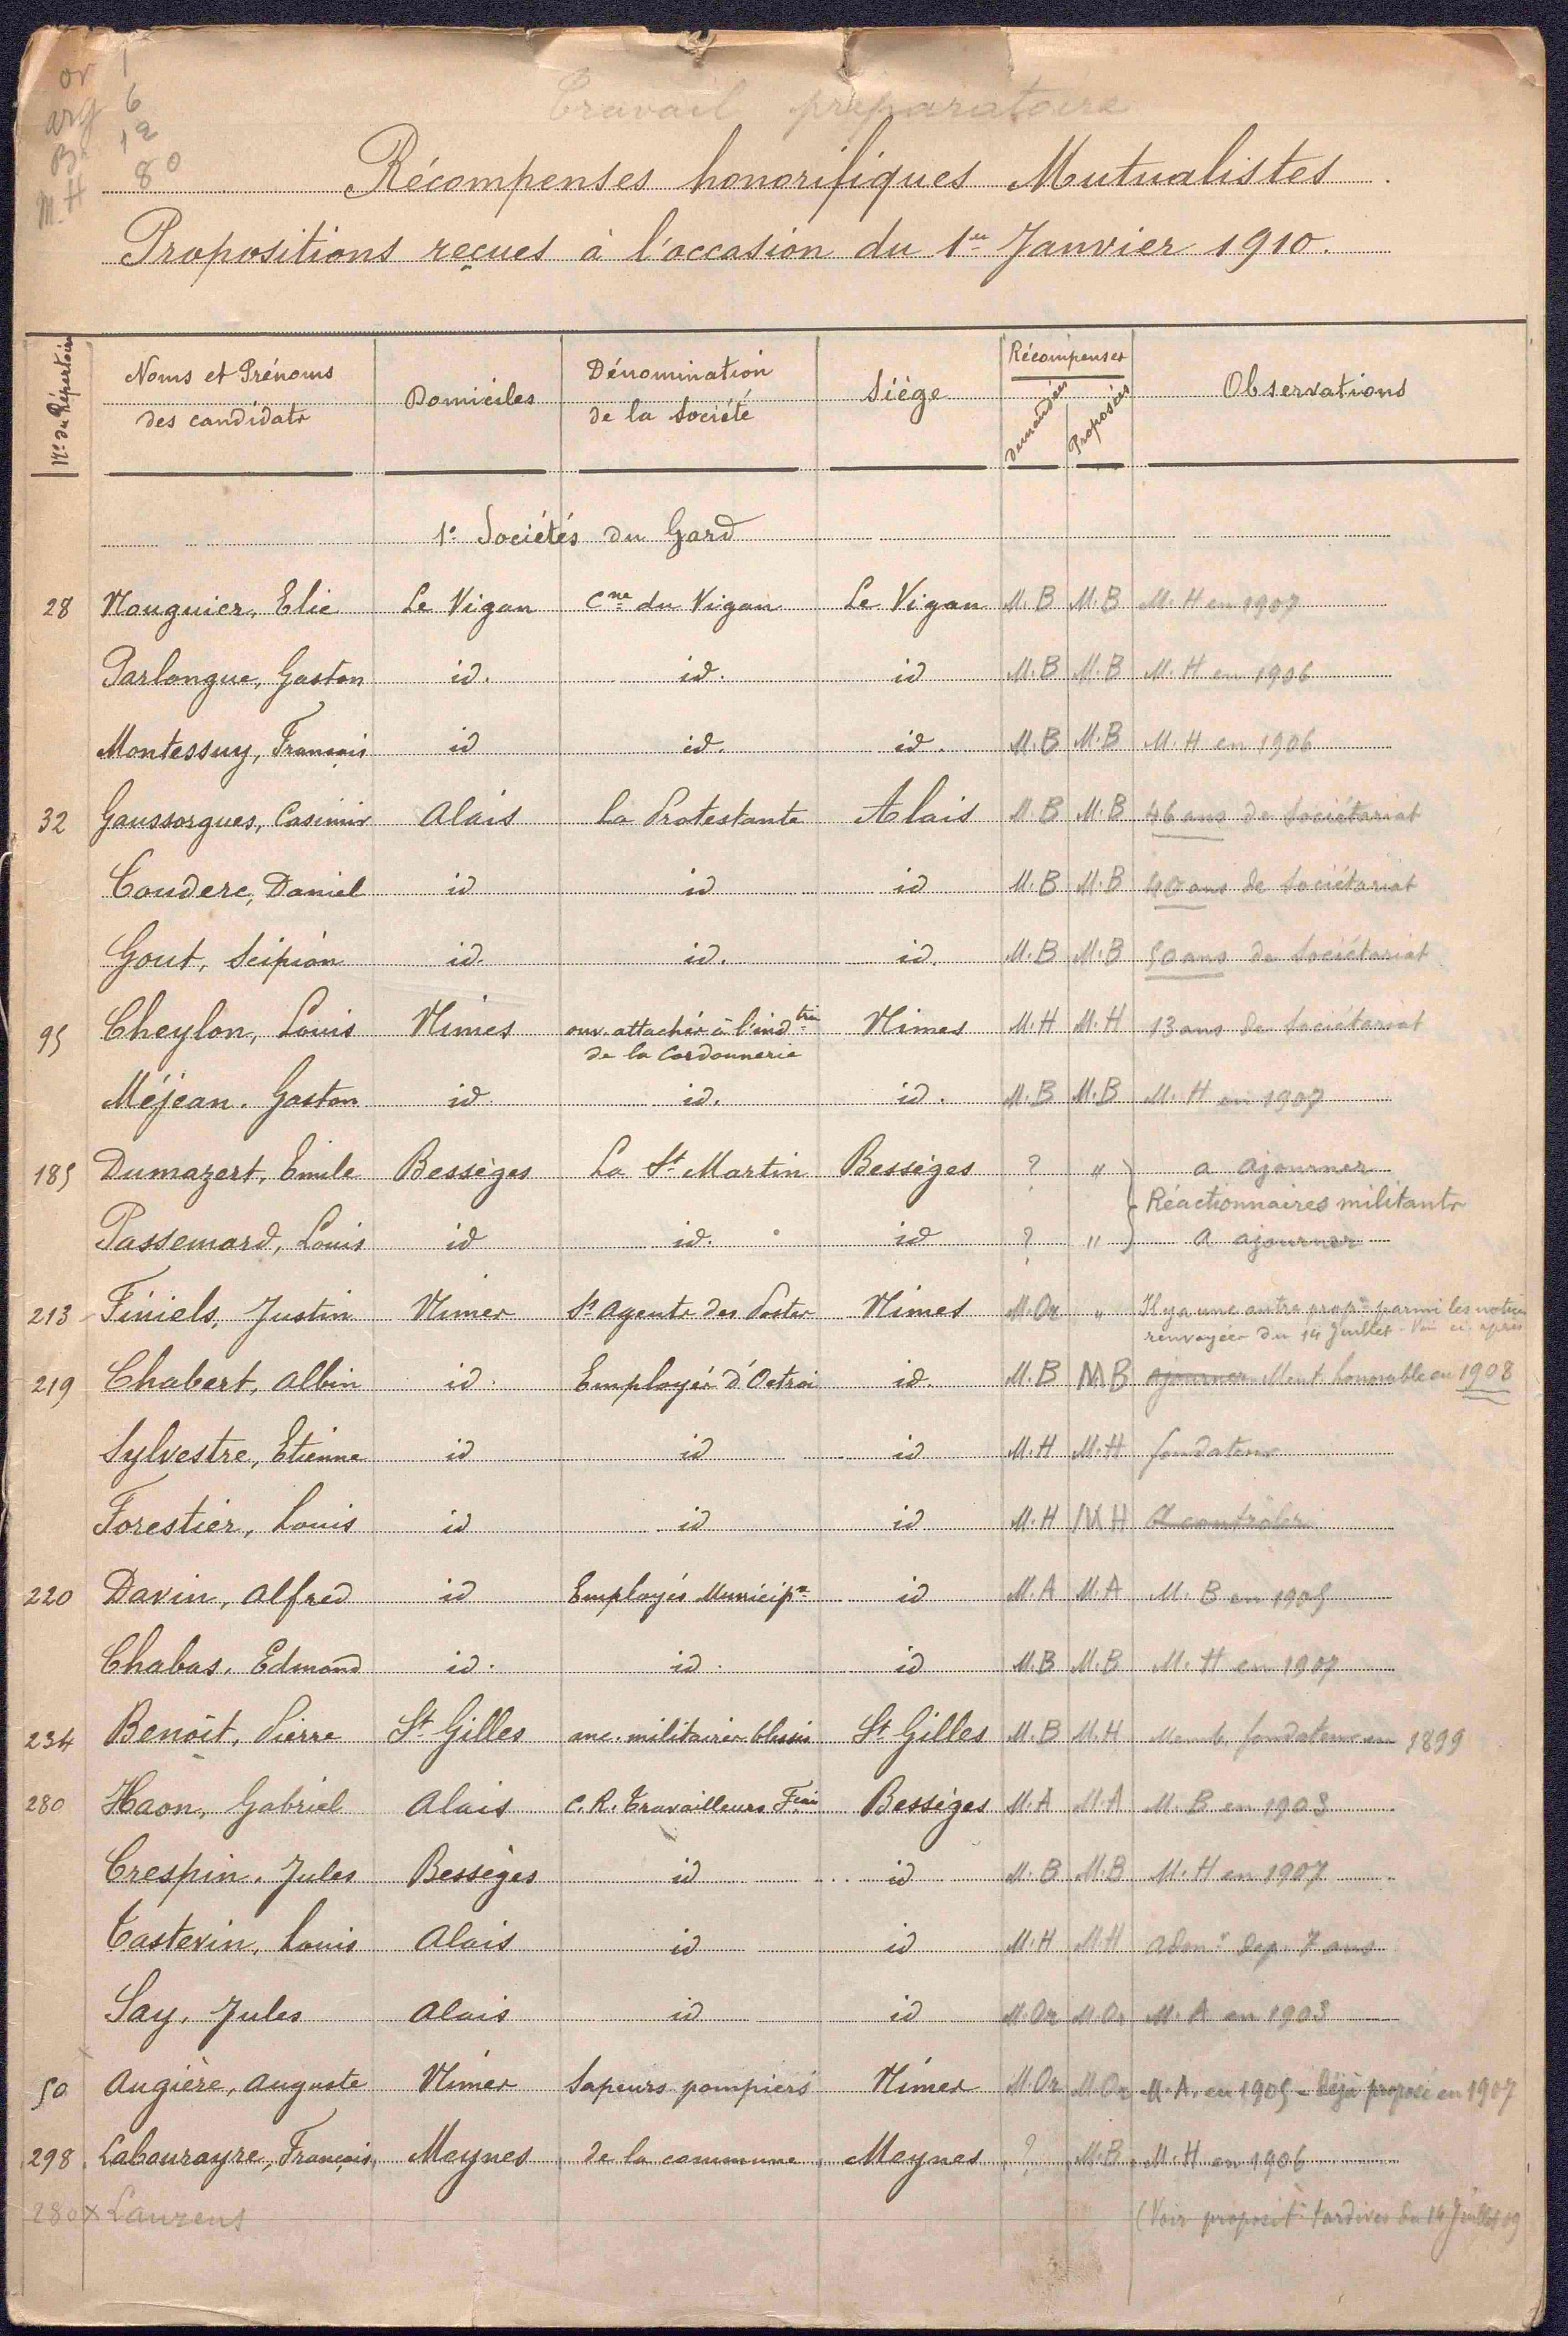 or 1
arg 6
Br 12
M.H 80
Travail préparatoire
Récompenses honorifiques Mutualistes.
Propositions reçues à l'occasion du 1er Janvier 1910.
Nos du Répertoire | Noms et Prénoms des candidats | Domiciles | Dénomination de la Société | Siège | Récompenses demandées | Proposées | Observations
1° Sociétés du Gard
28 Nouguier, Elie Le Vigan Cne du Vigan Le Vigan M.B M.B M.H en 1907
Parlongue, Gaston id. id. id M.B M.B M.H en 1906
Montessuy, François id id. id. M.B M.B M.H en 1906
32 Gaussorgues, Casimir Alais La Protestante Alais M.B M.B 46 ans de Sociétariat
Couderc, Daniel id id id M.B M.B 40 ans de Sociétariat
Gout, Scipion id. id. id. M.B M.B 50 ans de Sociétariat
95 Cheylon, Louis Nimes ouv. attachés à l'indtrie Nimes M.H M.H 13 ans de Sociétariat
de la Cordonnerie
Méjean. Gaston id. id. id. M.B M.B M.H en 1907
185 Dumazert, Emile Bessèges La St Martin Bessèges ? " a ajourner
Réactionnaires militants
Passemard, Louis id id. id ? " a ajourner
213 Finiels, Justin Nimes s/agents des Postes Nimes M.Or " Il y a une autre propon parmi les notices
renvoyées du 14 Juillet - Voir ci-après
219 Chabert, Albin id. Employés d'Octroi id. M.B M B ajourner Ment. honorable en 1908
Sylvestre, Etienne id id id M.H M.H fondateur
Forestier, Louis id id id M.H M H A contrôler
220 Davin, Alfred id Employés Municipx id M.A M.A M.B en 1905
Chabas, Edmond id. id. id M.B M.B M.H en 1907
234 Benoit, Pierre St Gilles anc. militaires blessés St Gilles M.B M.H Memb. fondateur en 1899
280 Haon, Gabriel Alais C.R. Travailleurs Fçais Bessèges M.A M.A M.B en 1903
Crespin, Jules Bessèges id id M.B M.B M.H en 1907
Tastevin, Louis Alais id id M.H M.H admr dep. 7 ans
Say, Jules Alais id id M.Or M.Or M.A en 1903
50 Augière, Auguste Nimes Sapeurs pompiers Nimes M.Or M.Or M.A. en 1905 - Déjà proposé en 1907
298 Labourayre, François Meynes de la commune Meynes ? M.B M.H en 1906
280 x Laurens (Voir proposit. tardives du 14 Juillet 09